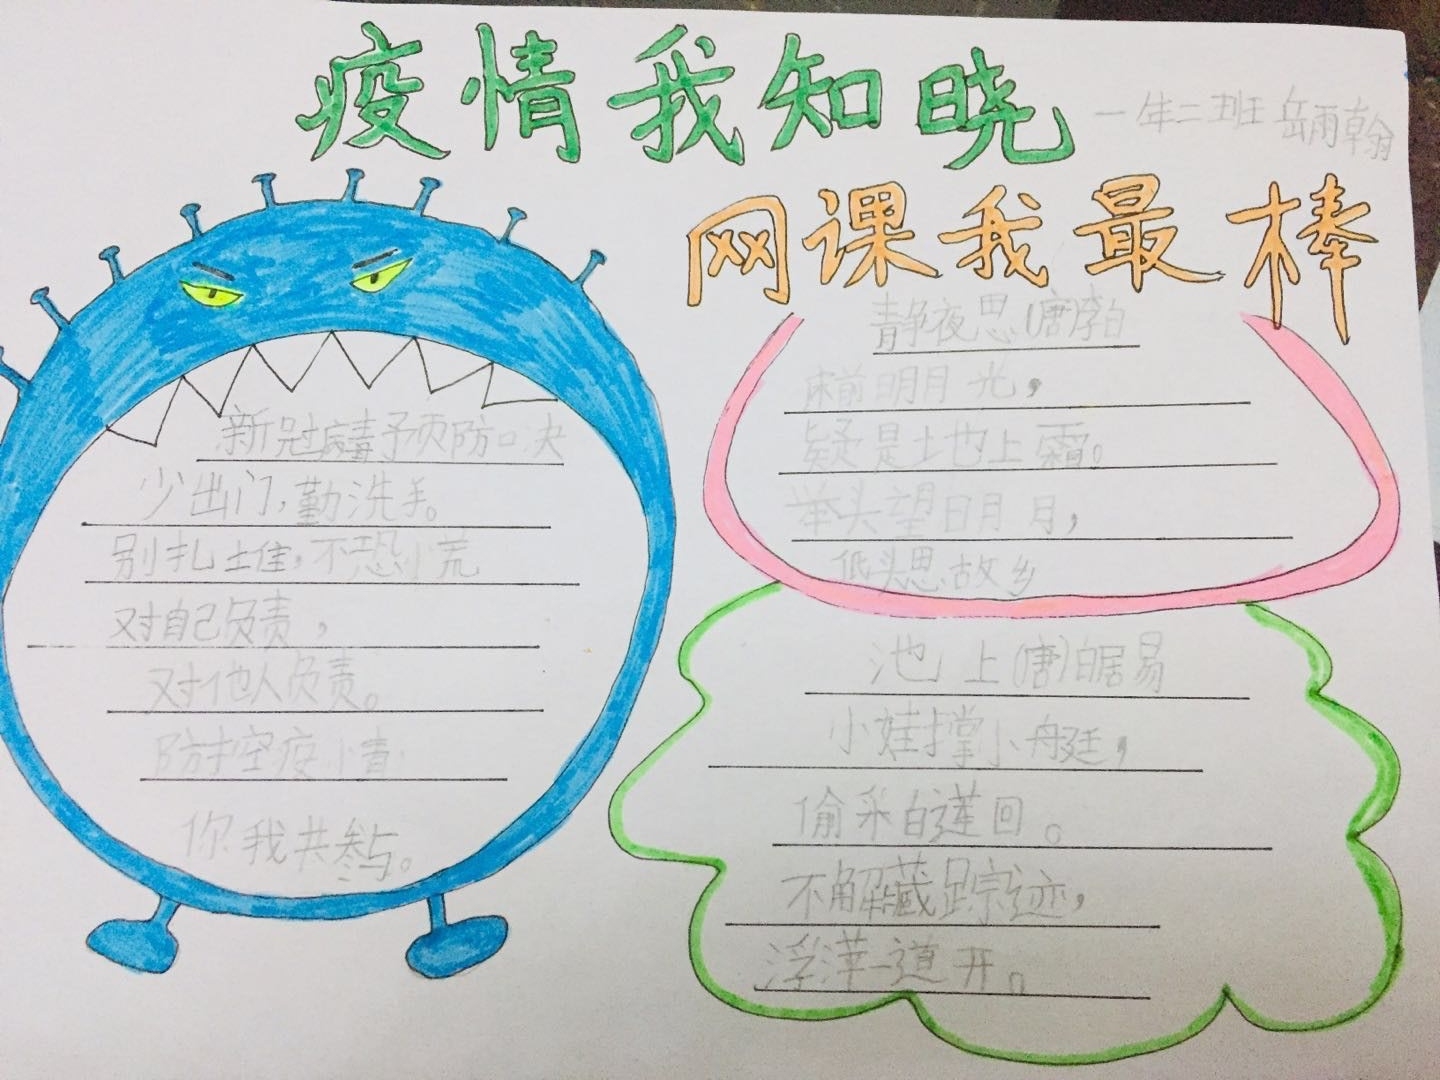 疫情我知晓
一年二班 岳雨翰
网课我最棒
新冠病毒予页防口决
少出门,勤洗手。
别扎堆,不恐慌
对自己负责,
对他人负责。
防控疫情
你我共参与。
静夜思(唐)李白
床前明月光,
疑是土也上霜。
举头望明月,
低头思故乡
池上(唐)白居易
小娃撑小艇,
偷采白莲回。
不解藏踪迹,
浮萍一道开。